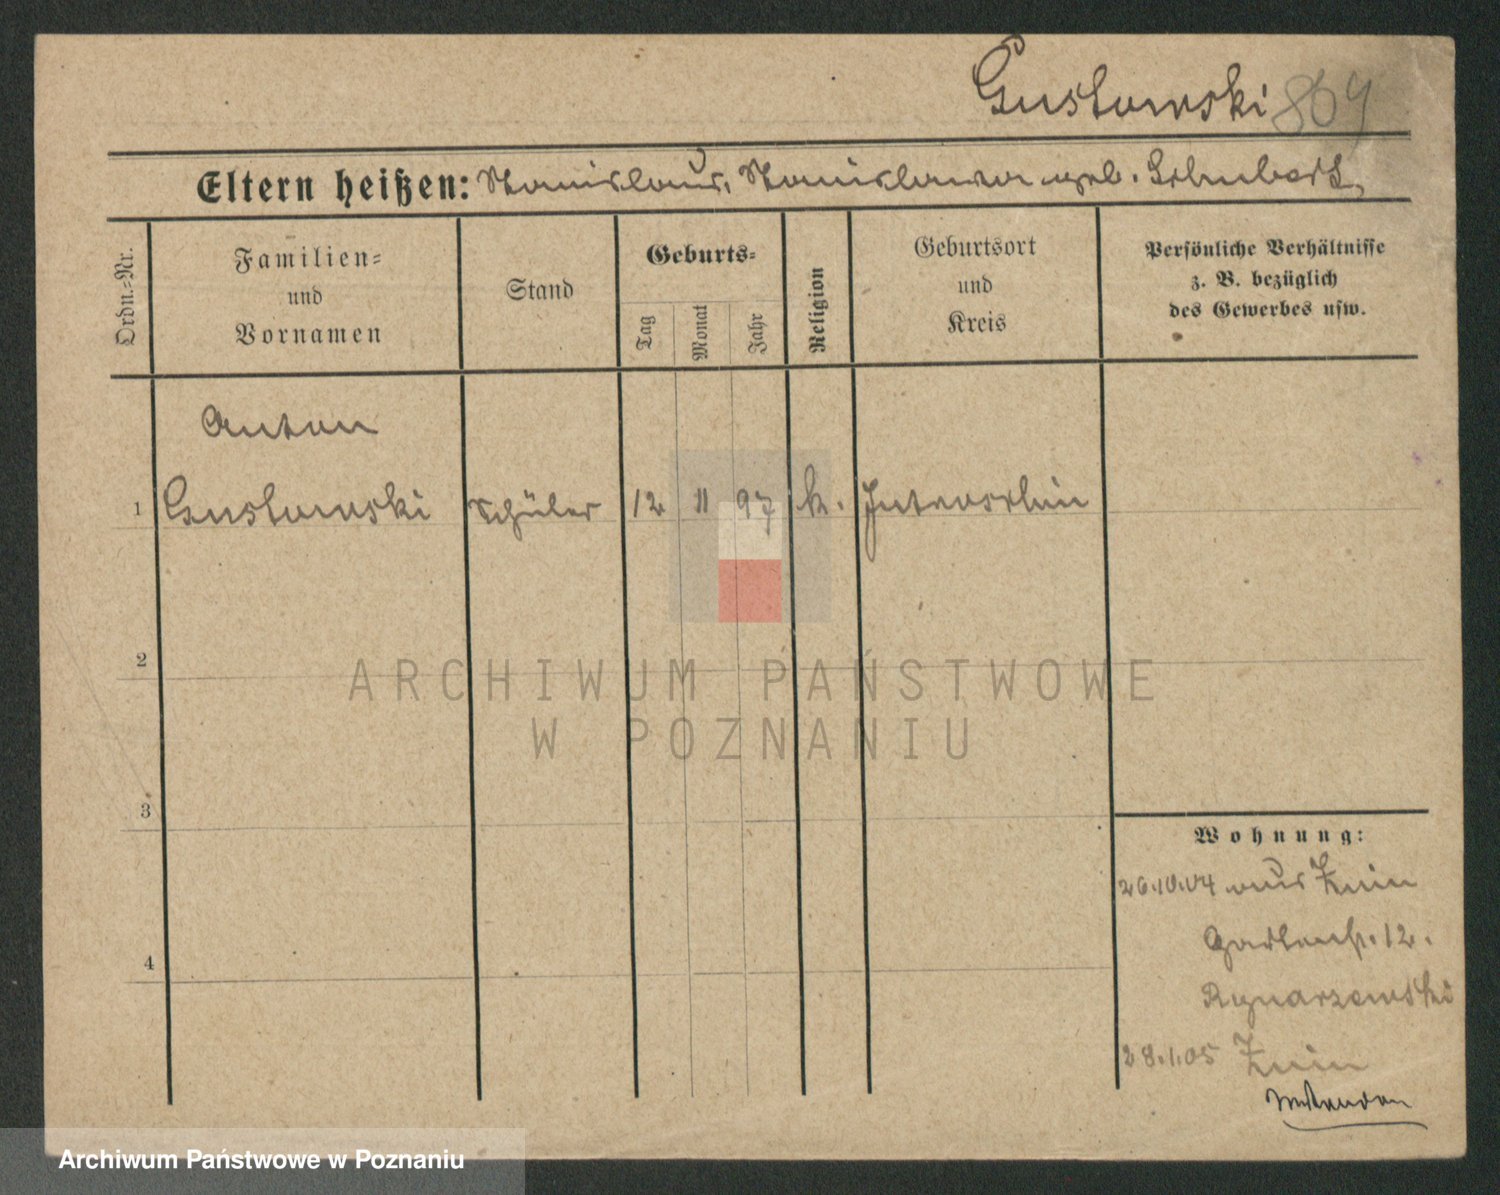 Gustowski 869
Eltern heißen: Stanislaus, Stanislawa geb. Schubert
Ordn.=Nr.
Familien=
und
Vornamen
Stand
Geburts=
Tag
Monat
Jahr
Religion
Geburtsort
und
Kreis
Persönliche Verhältnisse
z. B. bezüglich
des Gewerbes usw.
Anton
1 Gustowski Schüler 12 11 97 k. Inowrazlaw
2
ARCHIWUM PAŃSTWOWE
W POZNANIU
3
Wohnung:
26.10.04 aus Znin
Gartenstr. 12.
4
28.1.05 Znin
Archiwum Państwowe w Poznaniu